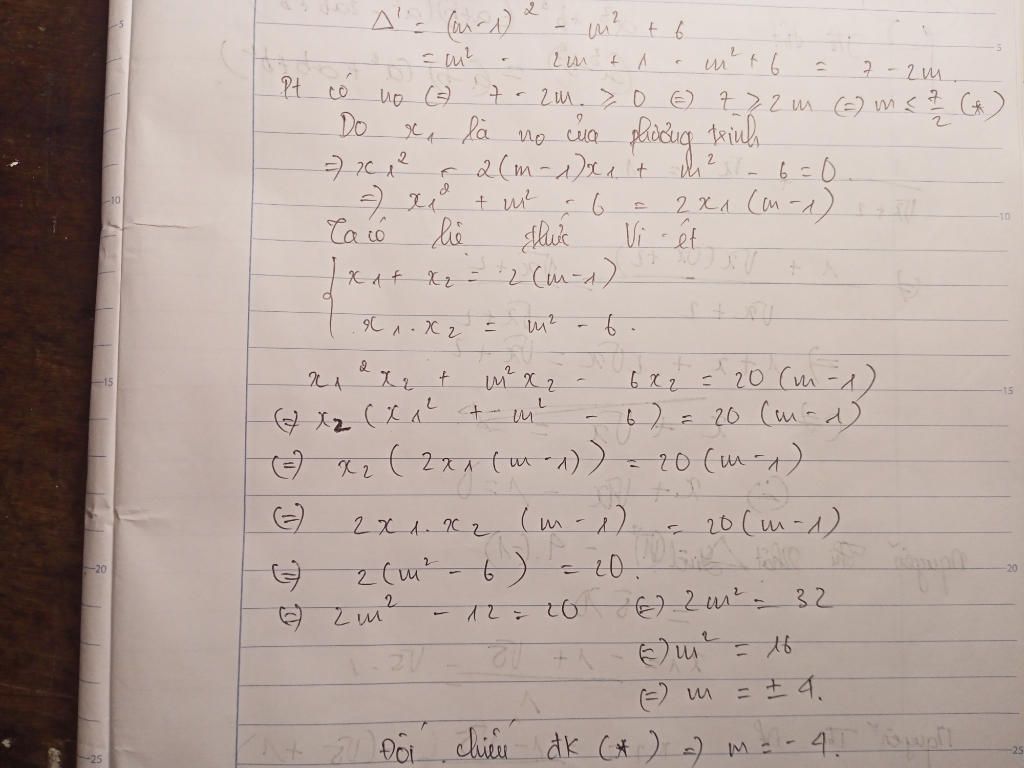 Δ' = (m-1)² - m² + 6
= m² - 2m + 1 - m² + 6 = 7 - 2m.
Pt có no (=) 7 - 2m. ≥ 0 (=) 7 ≥ 2m (=) m ≤ 7/2 (*)
Do x₁ là no của phương trình
=) x₁² - 2(m-1)x₁ + m² - 6 = 0.
=) x₁² + m² - 6 = 2x₁(m-1)
Ta có hệ thức Vi-ét
{ x₁ + x₂ = 2(m-1)
x₁.x₂ = m² - 6.
x₁²x₂ + m²x₂ - 6x₂ = 20(m-1)
(=) x₂(x₁² + m² - 6) = 20(m-1)
(=) x₂(2x₁(m-1)) = 20(m-1)
(=) 2x₁.x₂ (m-1) = 20(m-1)
(=) 2(m² - 6) = 20.
(=) 2m² - 12 = 20 (=) 2m² = 32
(=) m² = 16
(=) m = ± 4.
Đối chiếu đk (*) =) m = - 4.